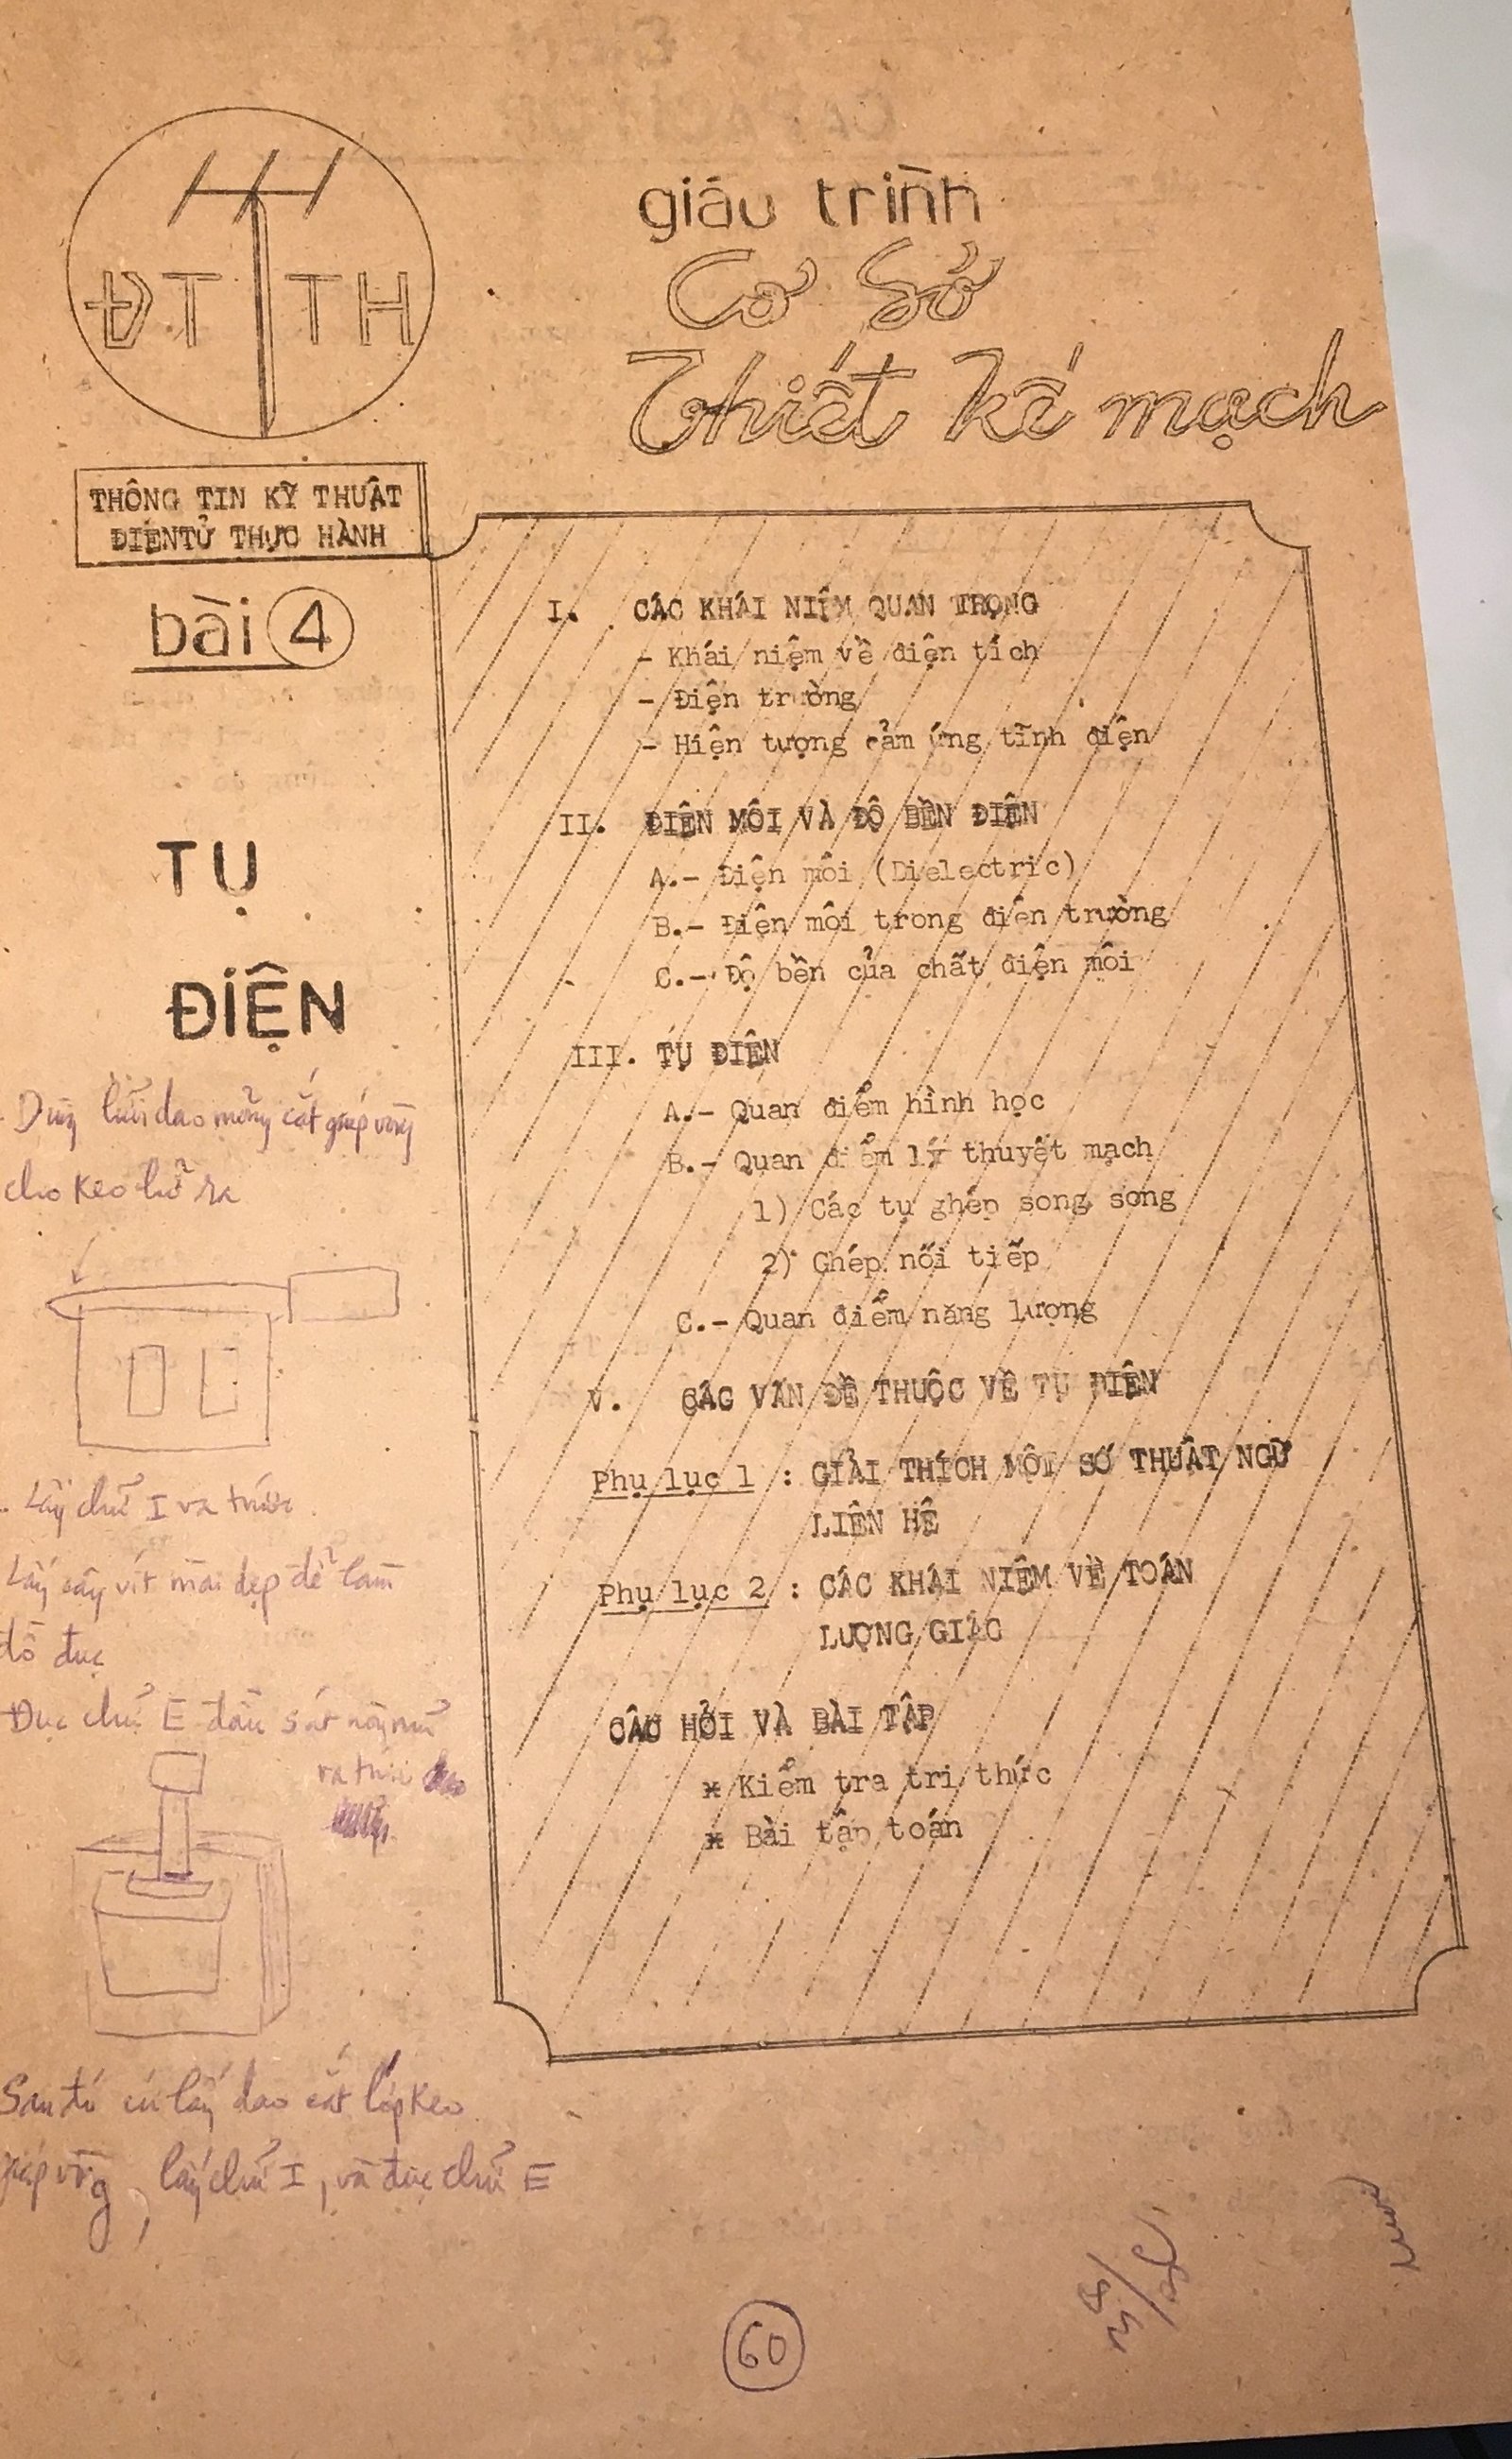 ĐT TH
giáo trình
Cơ Sở
Thiết kế mạch
THÔNG TIN KỸ THUẬT
ĐIỆNTỬ THỰC HÀNH
bài 4
TỤ
ĐIỆN
I. CÁC KHÁI NIỆM QUAN TRỌNG
- Khái niệm về điện tích
- Điện trường
- Hiện tượng cảm ứng tĩnh điện
II. ĐIỆN MÔI VÀ ĐỘ BỀN ĐIỆN
A.- Điện môi (Dielectric)
B.- Điện môi trong điện trường
C.- Độ bền của chất điện môi
III. TỤ ĐIỆN
A.- Quan điểm hình học
B.- Quan điểm lý thuyết mạch
1) Các tụ ghép song song
2) Ghép nối tiếp
C.- Quan điểm năng lượng
V. CÁC VẤN ĐỀ THUỘC VỀ TỤ ĐIỆN
Phụ lục 1 : GIẢI THÍCH MỘT SỐ THUẬT NGỮ
LIÊN HỆ
Phụ lục 2 : CÁC KHÁI NIỆM VỀ TOÁN
LƯỢNG GIÁC
CÂU HỎI VÀ BÀI TẬP
* Kiểm tra tri thức
* Bài tập toán
- Dùng lưỡi dao mỏng cắt giáp vòng
cho keo hở ra
- Lấy chữ I ra trước
Lấy cây vít mài dẹp để làm
đồ đục
Đục chữ E đầu sát
ra trước
Sau đó cứ lấy dao cắt lớp keo
giáp vòng, lấy chữ I, và đục chữ E
60